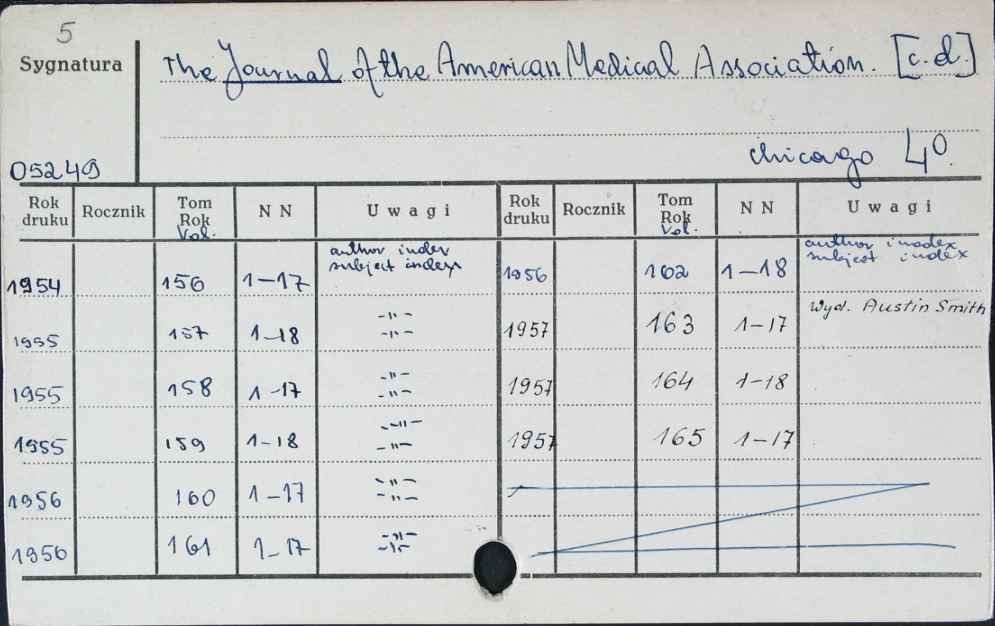 5
Sygnatura
The Journal of the American Medical Association. [c.d.]
Chicago 4°.
05249
Rok druku Rocznik Tom Rok Vol. NN Uwagi Rok druku Rocznik Tom Rok Vol. NN Uwagi
1954 156 1-17 author index subject indexs 1956 162 1-18 author inodex subject index
1955 157 1-18 -"- -"- 1957 163 1-17 Wyd. Austin Smith
1955 158 1-17 -"- -"- 1957 164 1-18
1955 159 1-18 -"- -"- 1957 165 1-17
1956 160 1-17 -"- -"-
1956 161 1-17 -"- -"-